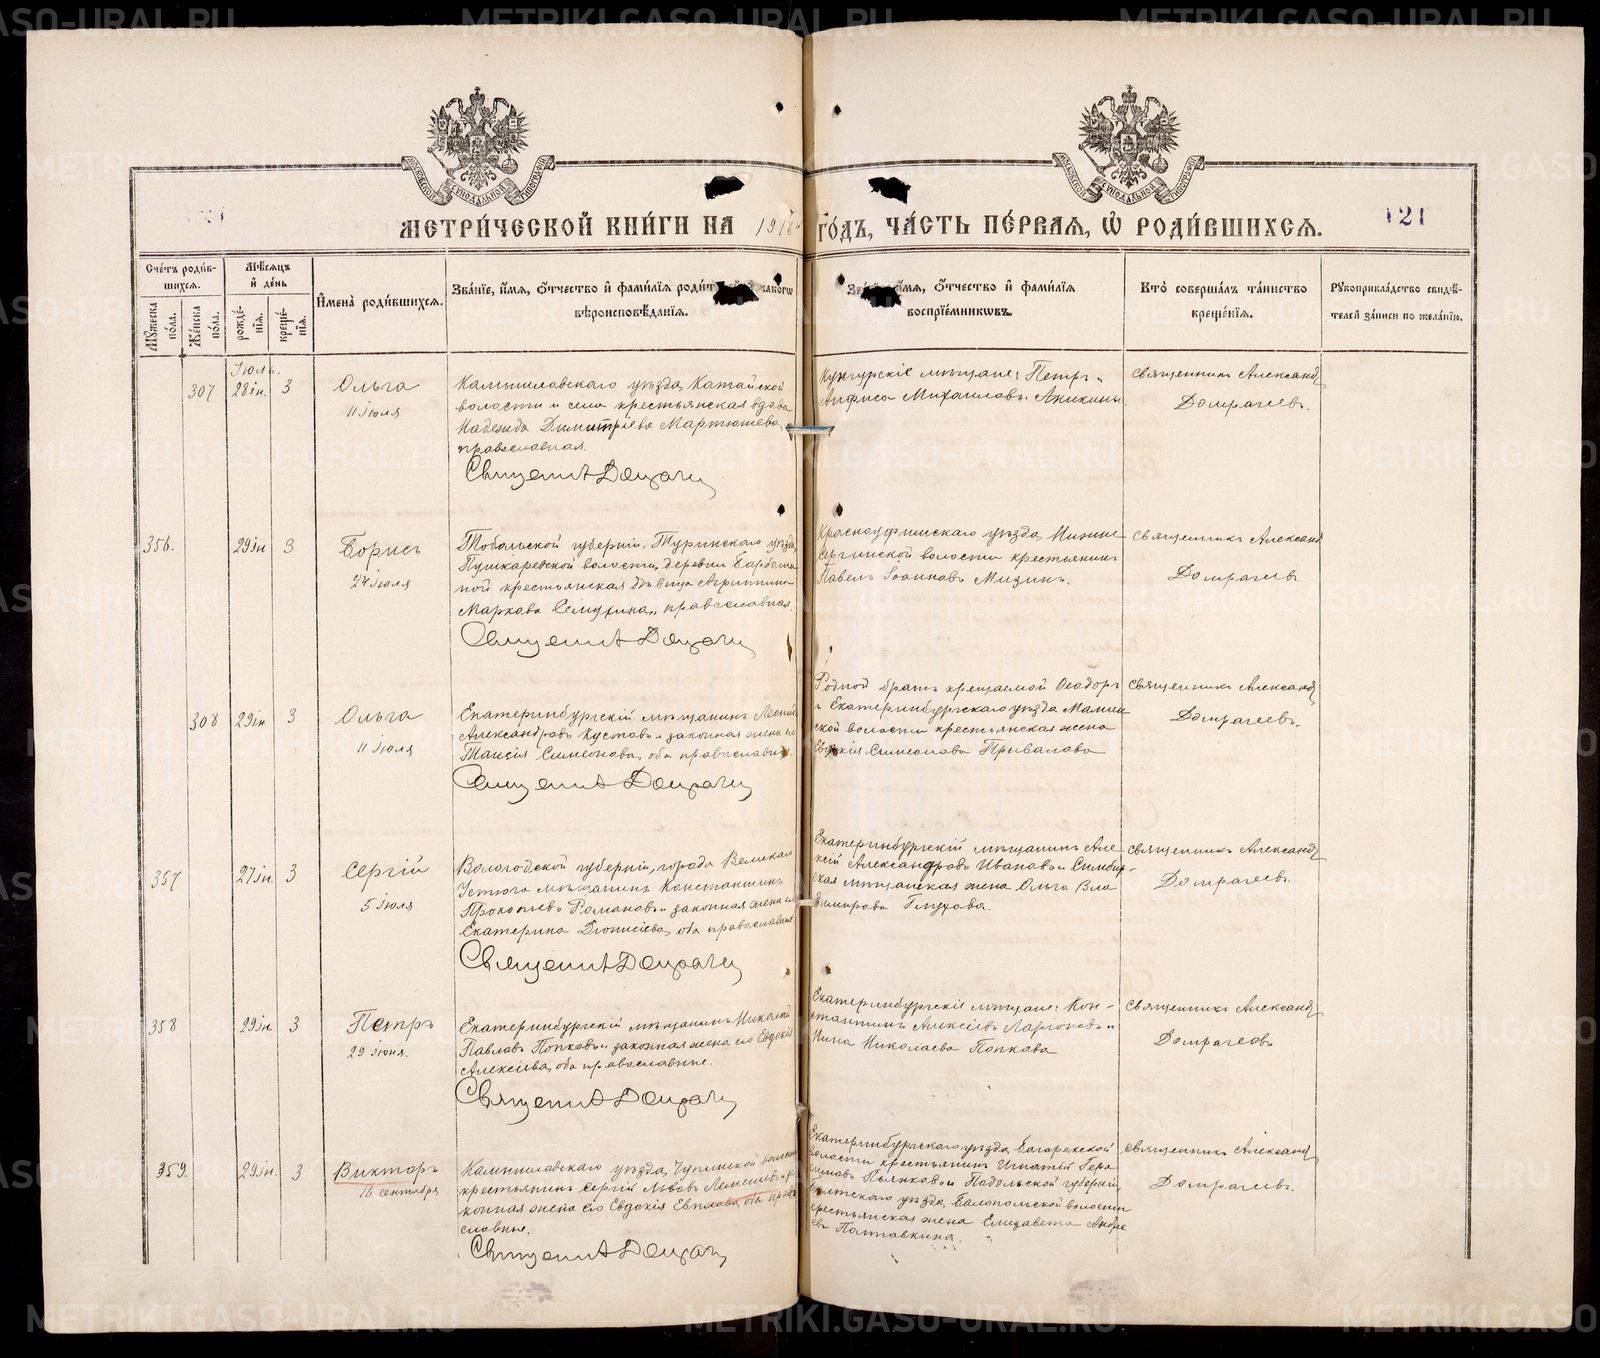 МЕТРИ́ЧЕСКОЙ КНИ́ГИ НА 1916 Го́дъ, ЧА́СТЬ ПЕ́РВАЯ, Ѡ҆ РОДИ́ВШИХСЯ.
121
Сче́тъ роди́вшихся.
Мѣ́сяцъ и҆ де́нь
Мꙋ́жеска по́ла.
Же́нска по́ла.
рожде́нїѧ.
креще́нїѧ.
И҆мена̀ роди́вшихсѧ.
Зва́нїе, и҆́мѧ, ѻ҆́тчество и҆ фами́лїѧ
вѣроисповѣ́данїѧ.
и҆́мѧ, ѻ҆́тчество и҆ фами́лїѧ
воспрїе́мникѡвъ.
Кто̀ соверша́лъ та́инство
креще́нїѧ.
Рꙋкоприкла́дство свидѣ́-
телей за́писи по жела́нїю.
Іюль.
307 28 ін. 3 Ольга
11 іюля
Камышловскаго уѣзда, Катайской
волости и села крестьянская вдова
Надежда Димитріева Мартюшева,
православная.
Священникъ Домрачевъ
Кунгурскіе мѣщане: Петръ и
Анфиса Михаиловы Аникины.
Священникъ Александръ
Домрачевъ.
356. 29 ін 3 Борисъ
24 іюля
Тобольской губерніи, Туринскаго уѣзда,
Пушкаревской волости, деревни
крестьянская дѣвица Агриппина
Маркова православная.
Священникъ Домрачевъ
Красноуфимскаго уѣзда Нижне-
Сергинской волости крестьянинъ
Павелъ Іоанновъ Мизинъ.
Священникъ Александръ
Домрачевъ
308 29 ін 3 Ольга
11 іюля
Екатеринбургскій мѣщанинъ Леонидъ
Александровъ Кустовъ и законная жена его
Таисія Симеонова, оба православные.
Священникъ Домрачевъ
Родной братъ крещаемой Ѳеодоръ
и Екатеринбургскаго уѣзда
волости крестьянская жена
Евдокія Симеонова Привалова
Священникъ Александръ
Домрачевъ.
357 27 ін. 3 Сергій
5 іюля
Вологодской губерніи, города Великаго
Устюга мѣщанинъ Константинъ
Прокопьевъ Романовъ и законная жена его
Екатерина Діонисіева, оба православные.
Священникъ Домрачевъ
Екатеринбургскій мѣщанинъ Алек-
Александровъ Ивановъ и Симбир-
ская мѣщанская жена Ольга Вла-
димирова Глухова.
Священникъ Александръ
Домрачевъ.
358 29 ін 3 Петръ
29 іюня.
Екатеринбургскій мѣщанинъ Николай
Павловъ Попковъ и законная жена его Евдокія
Алексіева, оба православные.
Священникъ Домрачевъ
Екатеринбургскіе мѣщане: Кон-
стантинъ Алексіевъ Ларіоновъ и
Нина Николаева Попкова
Священникъ Александръ
Домрачевъ
359. 29 ін. 3 Викторъ
16 сентября
Камышловскаго уѣзда, Чупинской волости
крестьянинъ Сергій Львовъ Лемешевъ и за-
конная жена его Евдокія Евплова, оба право-
славные.
Священникъ Домрачевъ
Екатеринбургскаго уѣзда, Багарякской
волости крестьянинъ Игнатій Гера-
симовъ Пьянковъ и Подольской губерніи,
Балтскаго уѣзда, волости
крестьянская жена Елизавета Андре-
ева Полтавкина.
Священникъ Александръ
Домрачевъ.
METRIKI.GASO-URAL.RU